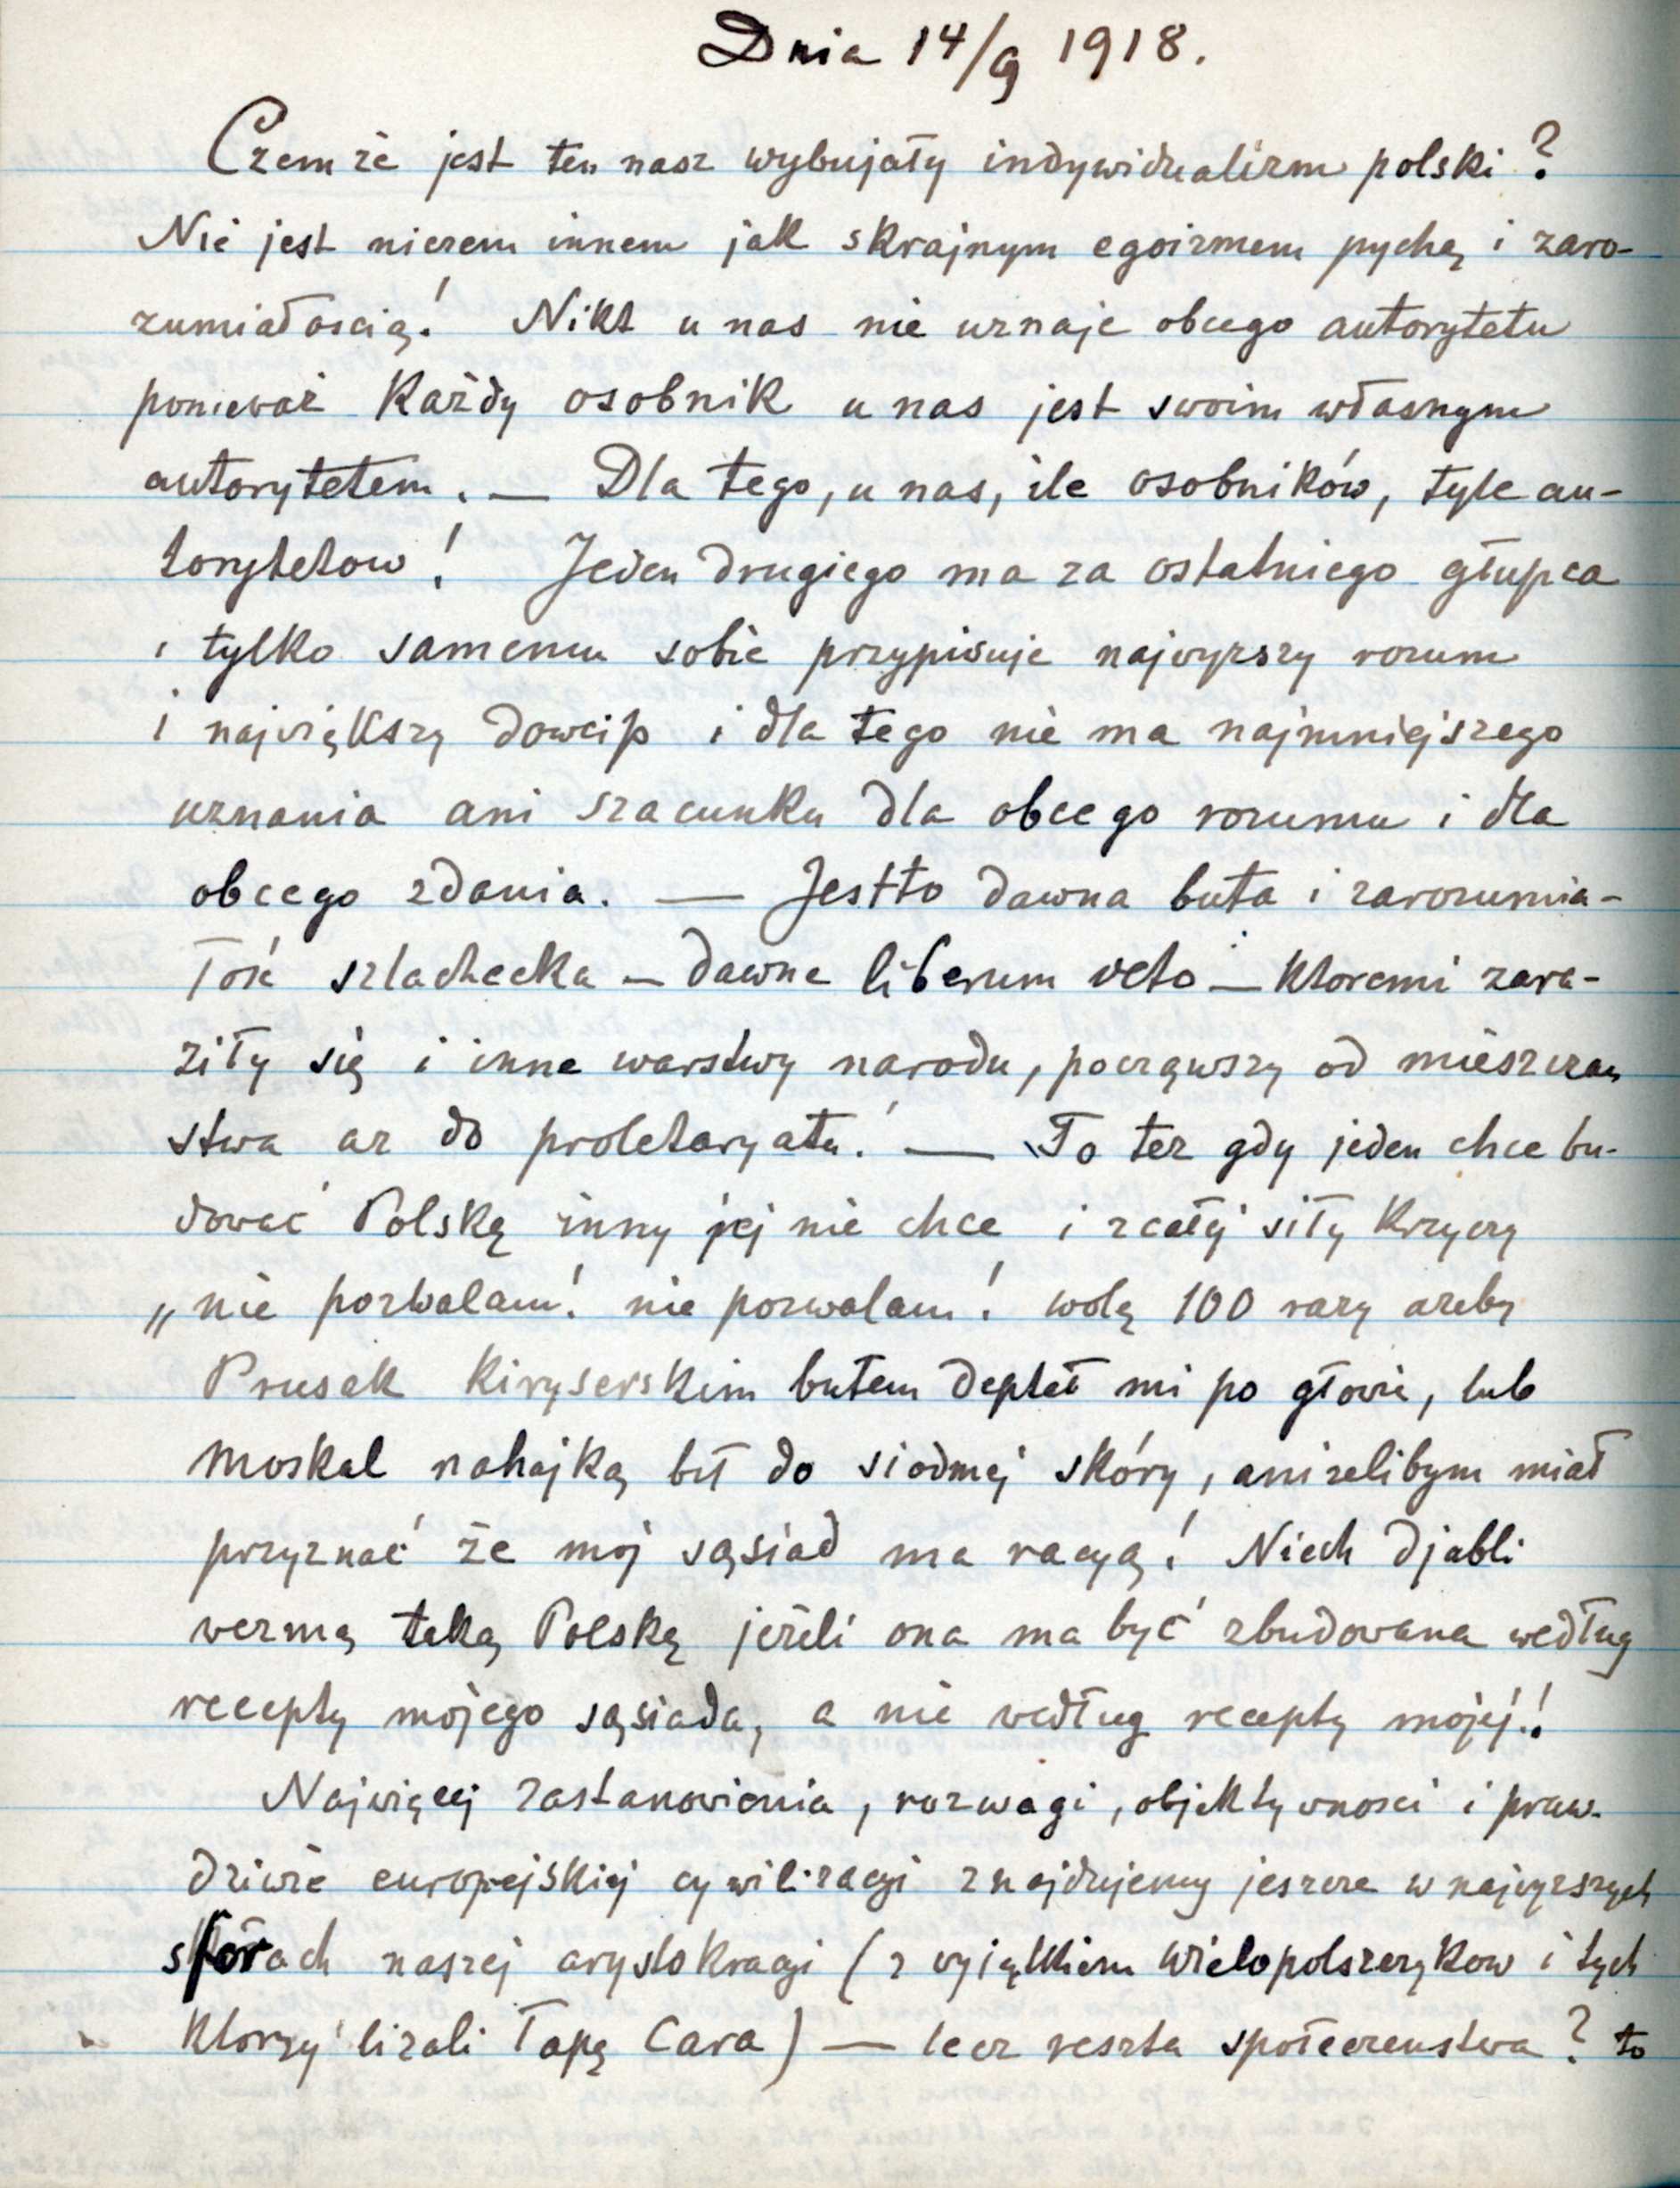 Dnia 14/9 1918.
Czemże jest ten nasz wybujały indywidualizm polski?
Nie jest niczem innem jak skrajnym egoizmem pychą i zaro-
zumiałością! Nikt u nas nie uznaje obcego autorytetu
ponieważ każdy osobnik u nas jest swoim własnym
autorytetem. — Dla tego, u nas, ile osobników, tyle au-
torytetow! Jeden drugiego ma za ostatniego głupca
i tylko samemu sobie przypisuje najwyższy rozum
i największy dowcip i dla tego nie ma najmniejszego
uznania ani szacunku dla obcego rozumu i dla
obcego zdania. — Jestto dawna buta i zarozumia-
łość szlachecka — dawne liberum veto — ktoremi zara-
ziły się i inne warstwy narodu, począwszy od mieszczan
stwa az do proletaryatu! — To tez gdy jeden chce bu-
dować Polskę inny jej nie chce i z całej siły krzyczy
„nie pozwalam! nie pozwalam! wolę 100 razy azeby
Prusak kiryserskim butem deptał mi po głowie, lub
Moskal nahajką bił do siodmej skóry, anizelibym miał
przyznać że moj sąsiad ma racyą! Niech djabli
wezmą taką Polskę jeżeli ona ma być zbudowana według
recepty mojego sąsiada, a nie według recepty mojej!!
Najwięcej zastanowienia, rozwagi, objektywnosci i praw-
dziwie europejskiej cywilizacyi znajdujemy jeszcze w najwyzszych
sferach naszej arystokracyi (z wyjątkiem Wielopolszczykow i tych
ktorzy lizali łapę Cara) — lecz reszta społeczenstwa? to